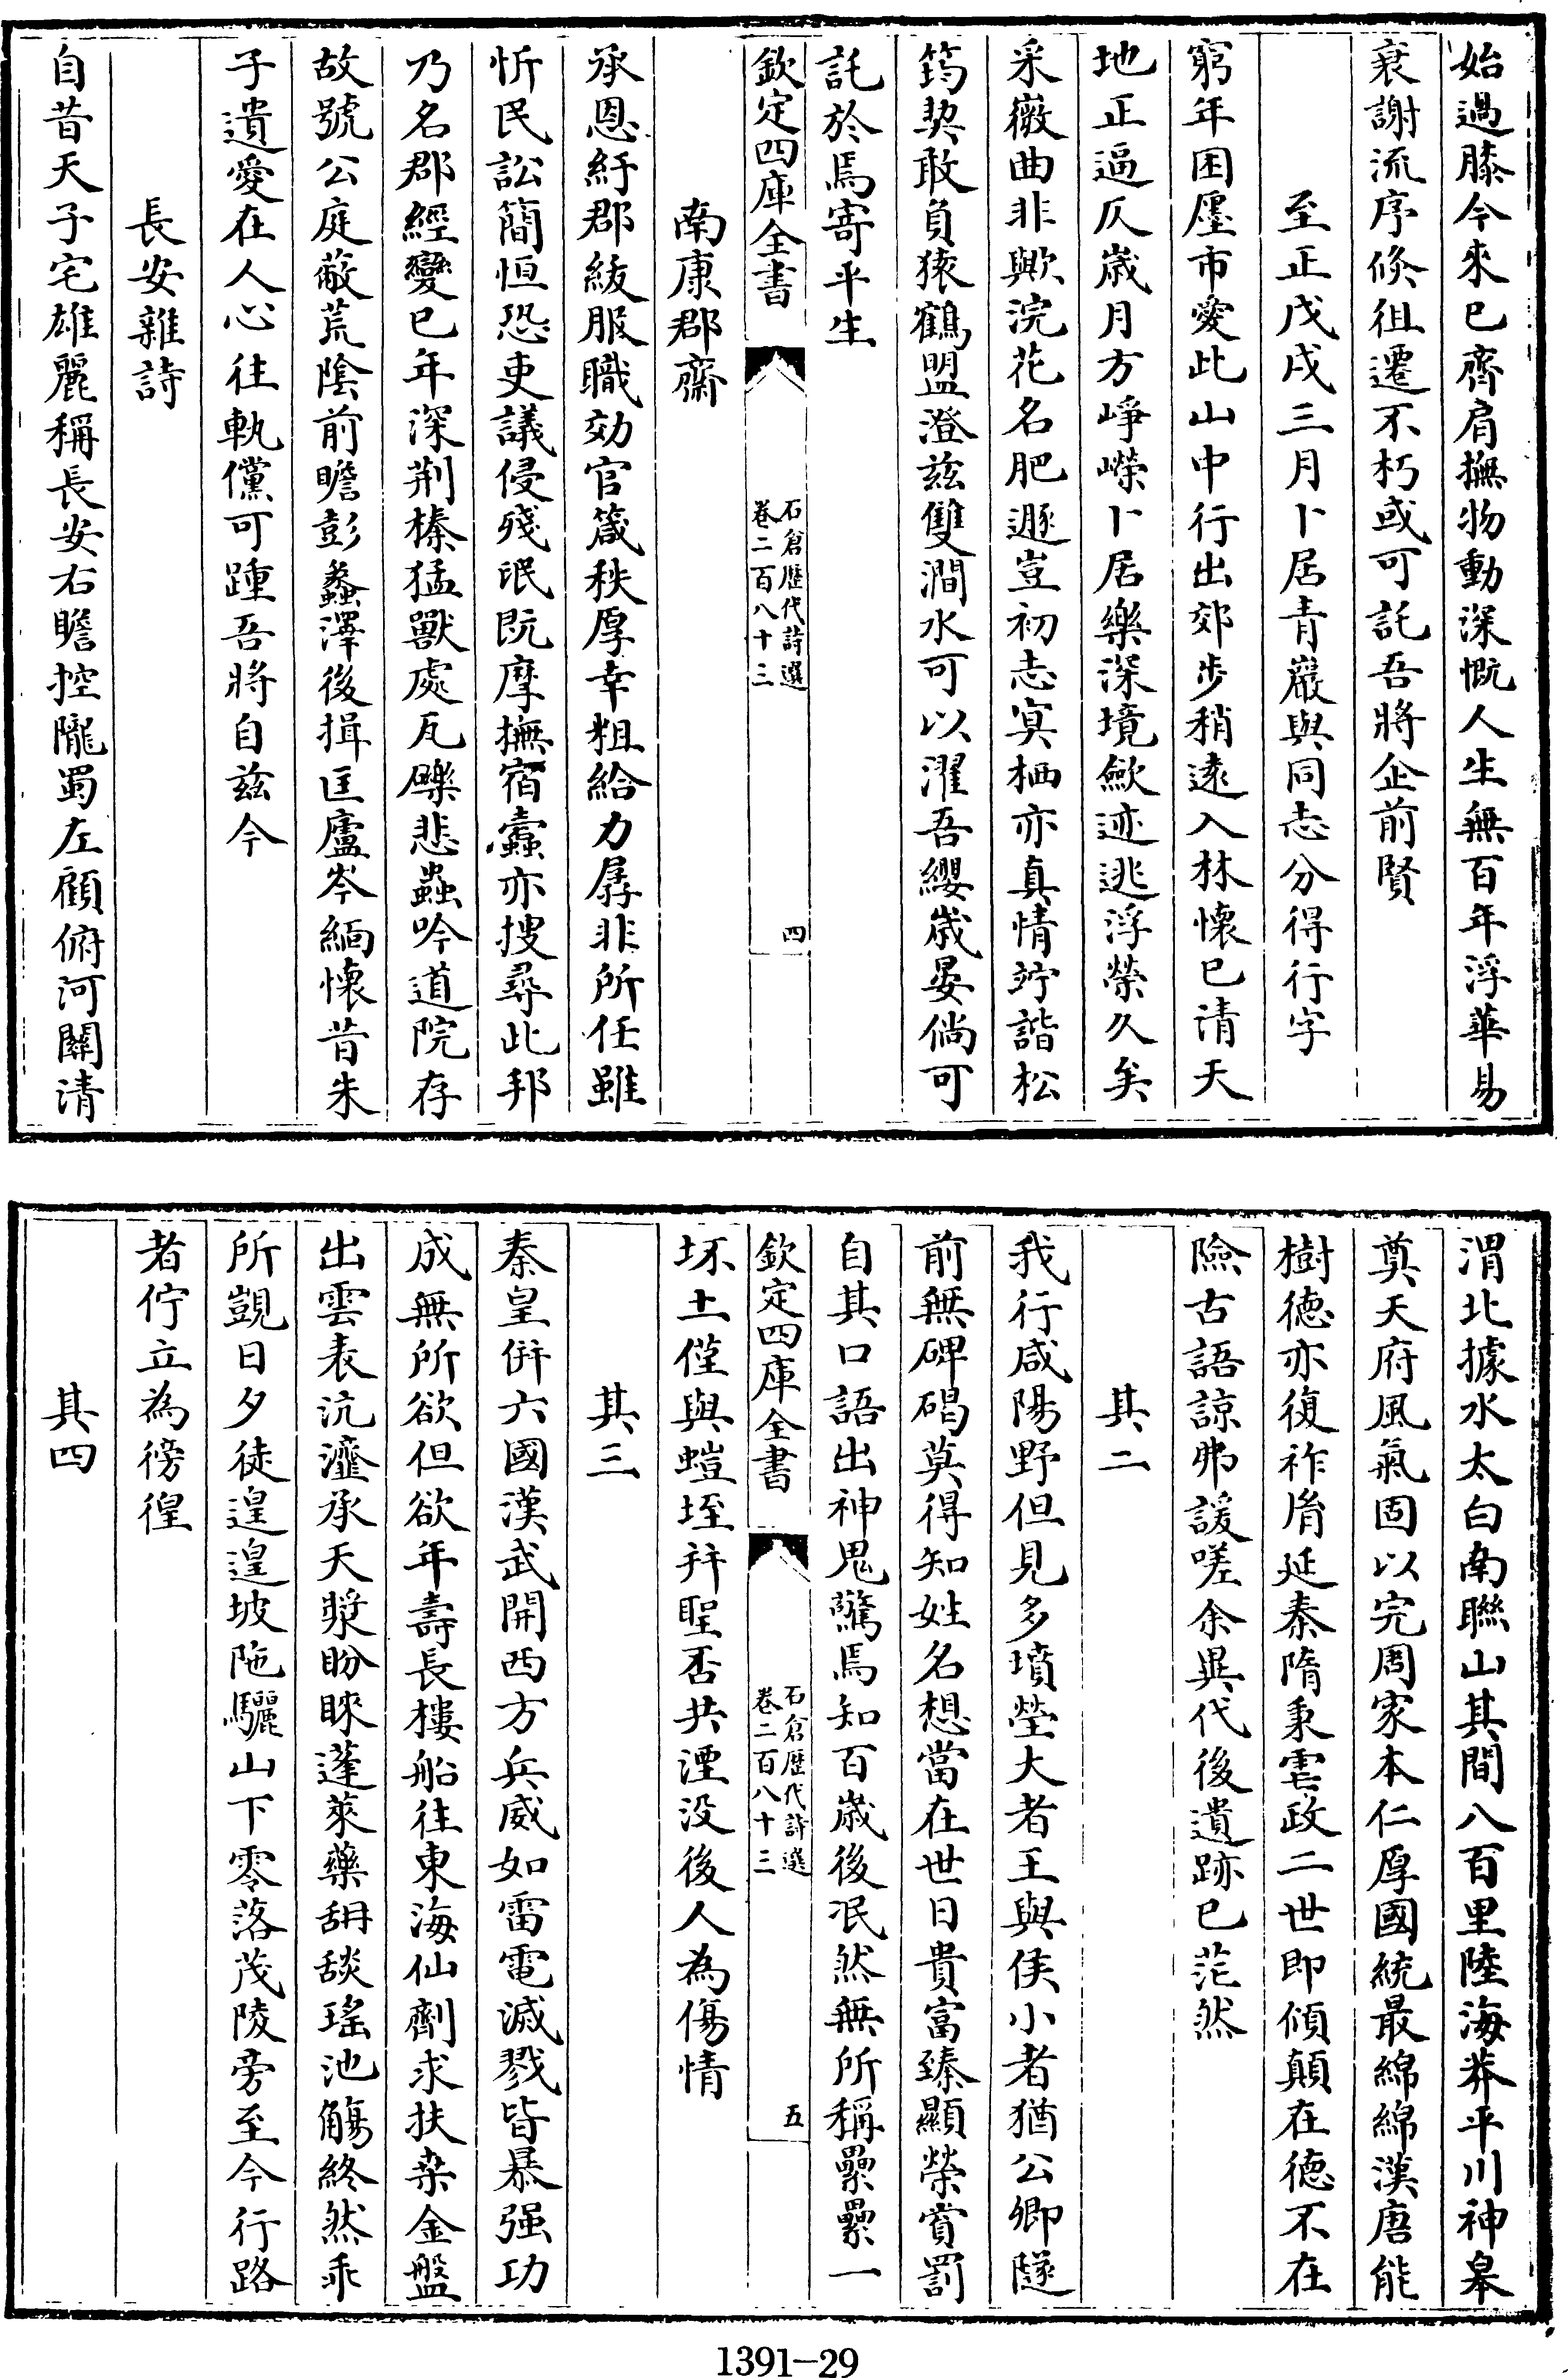 始過膝今來已齊肩撫物動深慨人生無百年浮華易
衰謝流序倐徂遷不朽或可託吾將企前賢
至正戊戌三月卜居青巖與同志分得行字
窮年困㕓市愛此山中行出郊步稍逺入林懷已清天
地正逼仄歳月方崢嶸卜居樂深境歛迹逃浮榮久矣
采薇曲非歟浣花名肥遯豈初志㝠栖亦真情竚諧松
筠契敢負猿鶴盟澄兹雙澗水可以濯吾纓歳晏倘可
託於焉寄平生
欽定四庫全書
石倉歴代詩選
卷二百八十三
四
南康郡齋
承恩紆郡紱服職効官箴秩厚幸粗給力孱非所任雖
忻民訟簡恒恐吏議侵殘氓既摩撫宿蠧亦搜尋此邦
乃名郡經變已年深荆榛猛獸處瓦礫悲蟲吟道院存
故號公庭蔽荒陰前瞻彭蠡澤後揖匡廬岑緬懷昔朱
子遺愛在人心往軌儻可踵吾將自兹今
長安雜詩
自昔天子宅雄麗稱長安右瞻控隴蜀左顧俯河關清
渭北據水太白南聯山其間八百里陸海莽平川神皋
奠天府風氣固以完周家本仁厚國統最綿綿漢唐能
樹徳亦復祚胤延秦隋秉雪政二世即傾顛在徳不在
險古語諒弗諼嗟余異代後遺跡已茫然
其二
我行咸陽野但見多墳塋大者王與侯小者猶公卿隧
前無碑碣莫得知姓名想當在世日貴富臻顯榮賞罰
自其口語出神鬼驚焉知百歳後泯然無所稱纍纍一
欽定四庫全書
石倉歴代詩選
卷二百八十三
五
坏土僅與螘垤并聖否共湮没後人為傷情
其三
秦皇併六國漢武開西方兵威如雷電滅戮皆暴强功
成無所欲但欲年壽長樓船往東海仙劑求扶桒金盤
出雲表沆瀣承天漿盼睞蓬萊藥䑛舕瑤池觴終然乖
所覬日夕徒遑遑坡陁驪山下零落茂陵旁至今行路
者佇立為徬徨
其四
1391-29